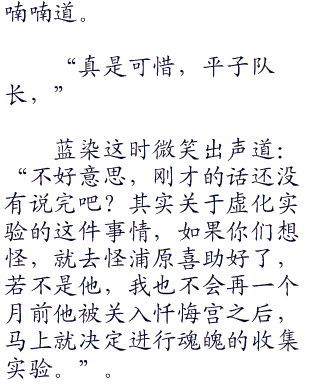 喃喃道。
“真是可惜，平子队
长，”
蓝染这时微笑出声道：
“不好意思，刚才的话还没
有说完吧？其实关于虚化实
验的这件事情，如果你们想
怪，就去怪浦原喜助好了，
若不是他，我也不会再一个
月前他被关入忏悔宫之后，
马上就决定进行魂魄的收集
实验。”。